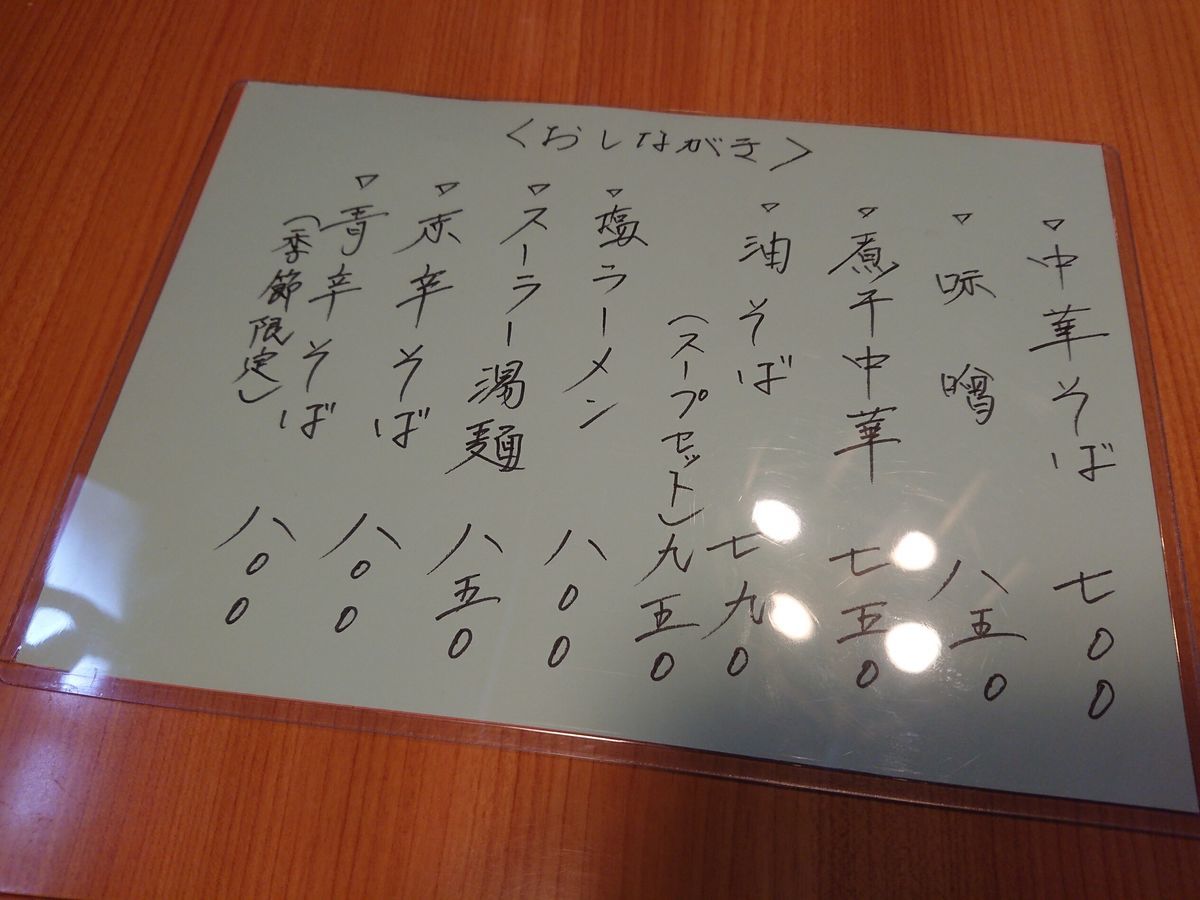 〈おしながき〉
▽中華そば 七〇〇
▽味噌 八五〇
▽煮干中華 七五〇
▽油そば 七九〇
(スープセット) 九五〇
▽塩ラーメン 八〇〇
▽スーラー湯麺 八五〇
▽赤辛そば 八〇〇
▽青辛そば 八〇〇
(季節限定)